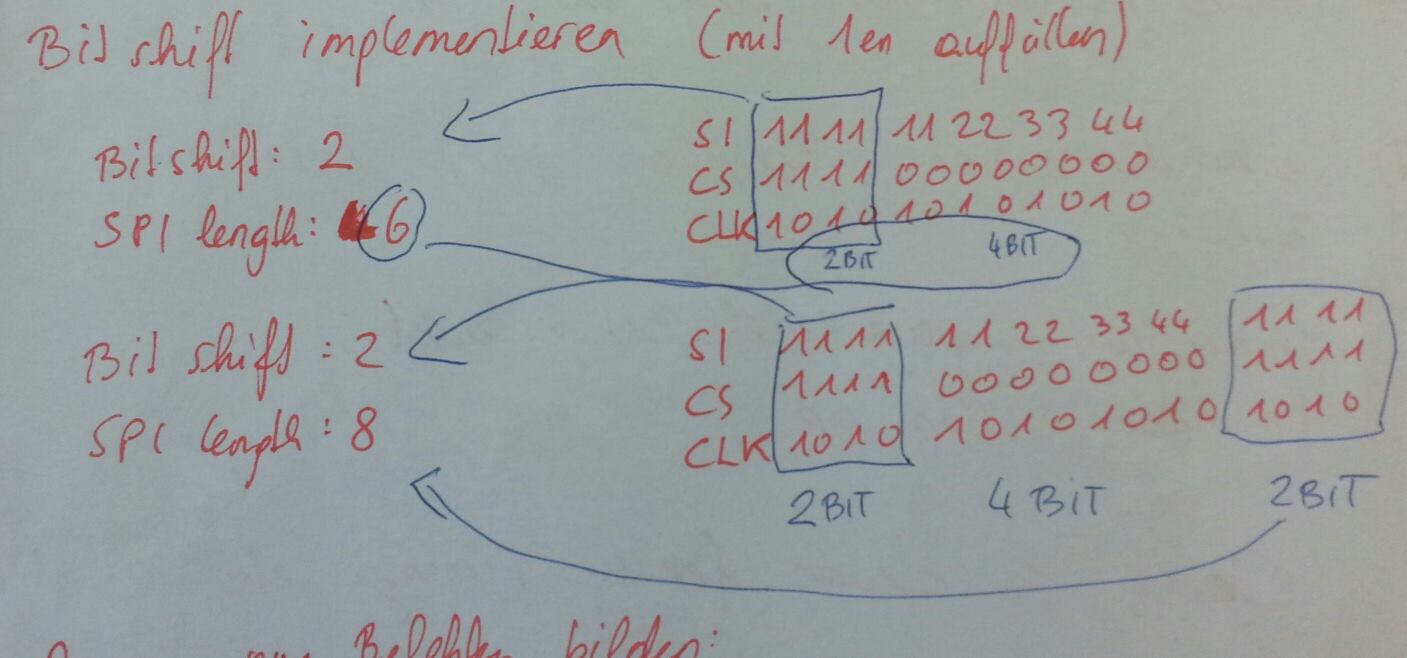 Bit shift implementieren (mit 1en auffüllen)
Bit shift: 2
SPI length: 6
SI 1111 11 22 33 44
CS 1111 00000000
CLK 1010 10101010
2BIT 4BIT
Bit shift : 2
SPI length : 8
SI 1111 11 22 33 44 1111
CS 1111 00000000 1111
CLK 1010 10101010 1010
2BIT 4BIT 2BIT
Befehlen bilden: